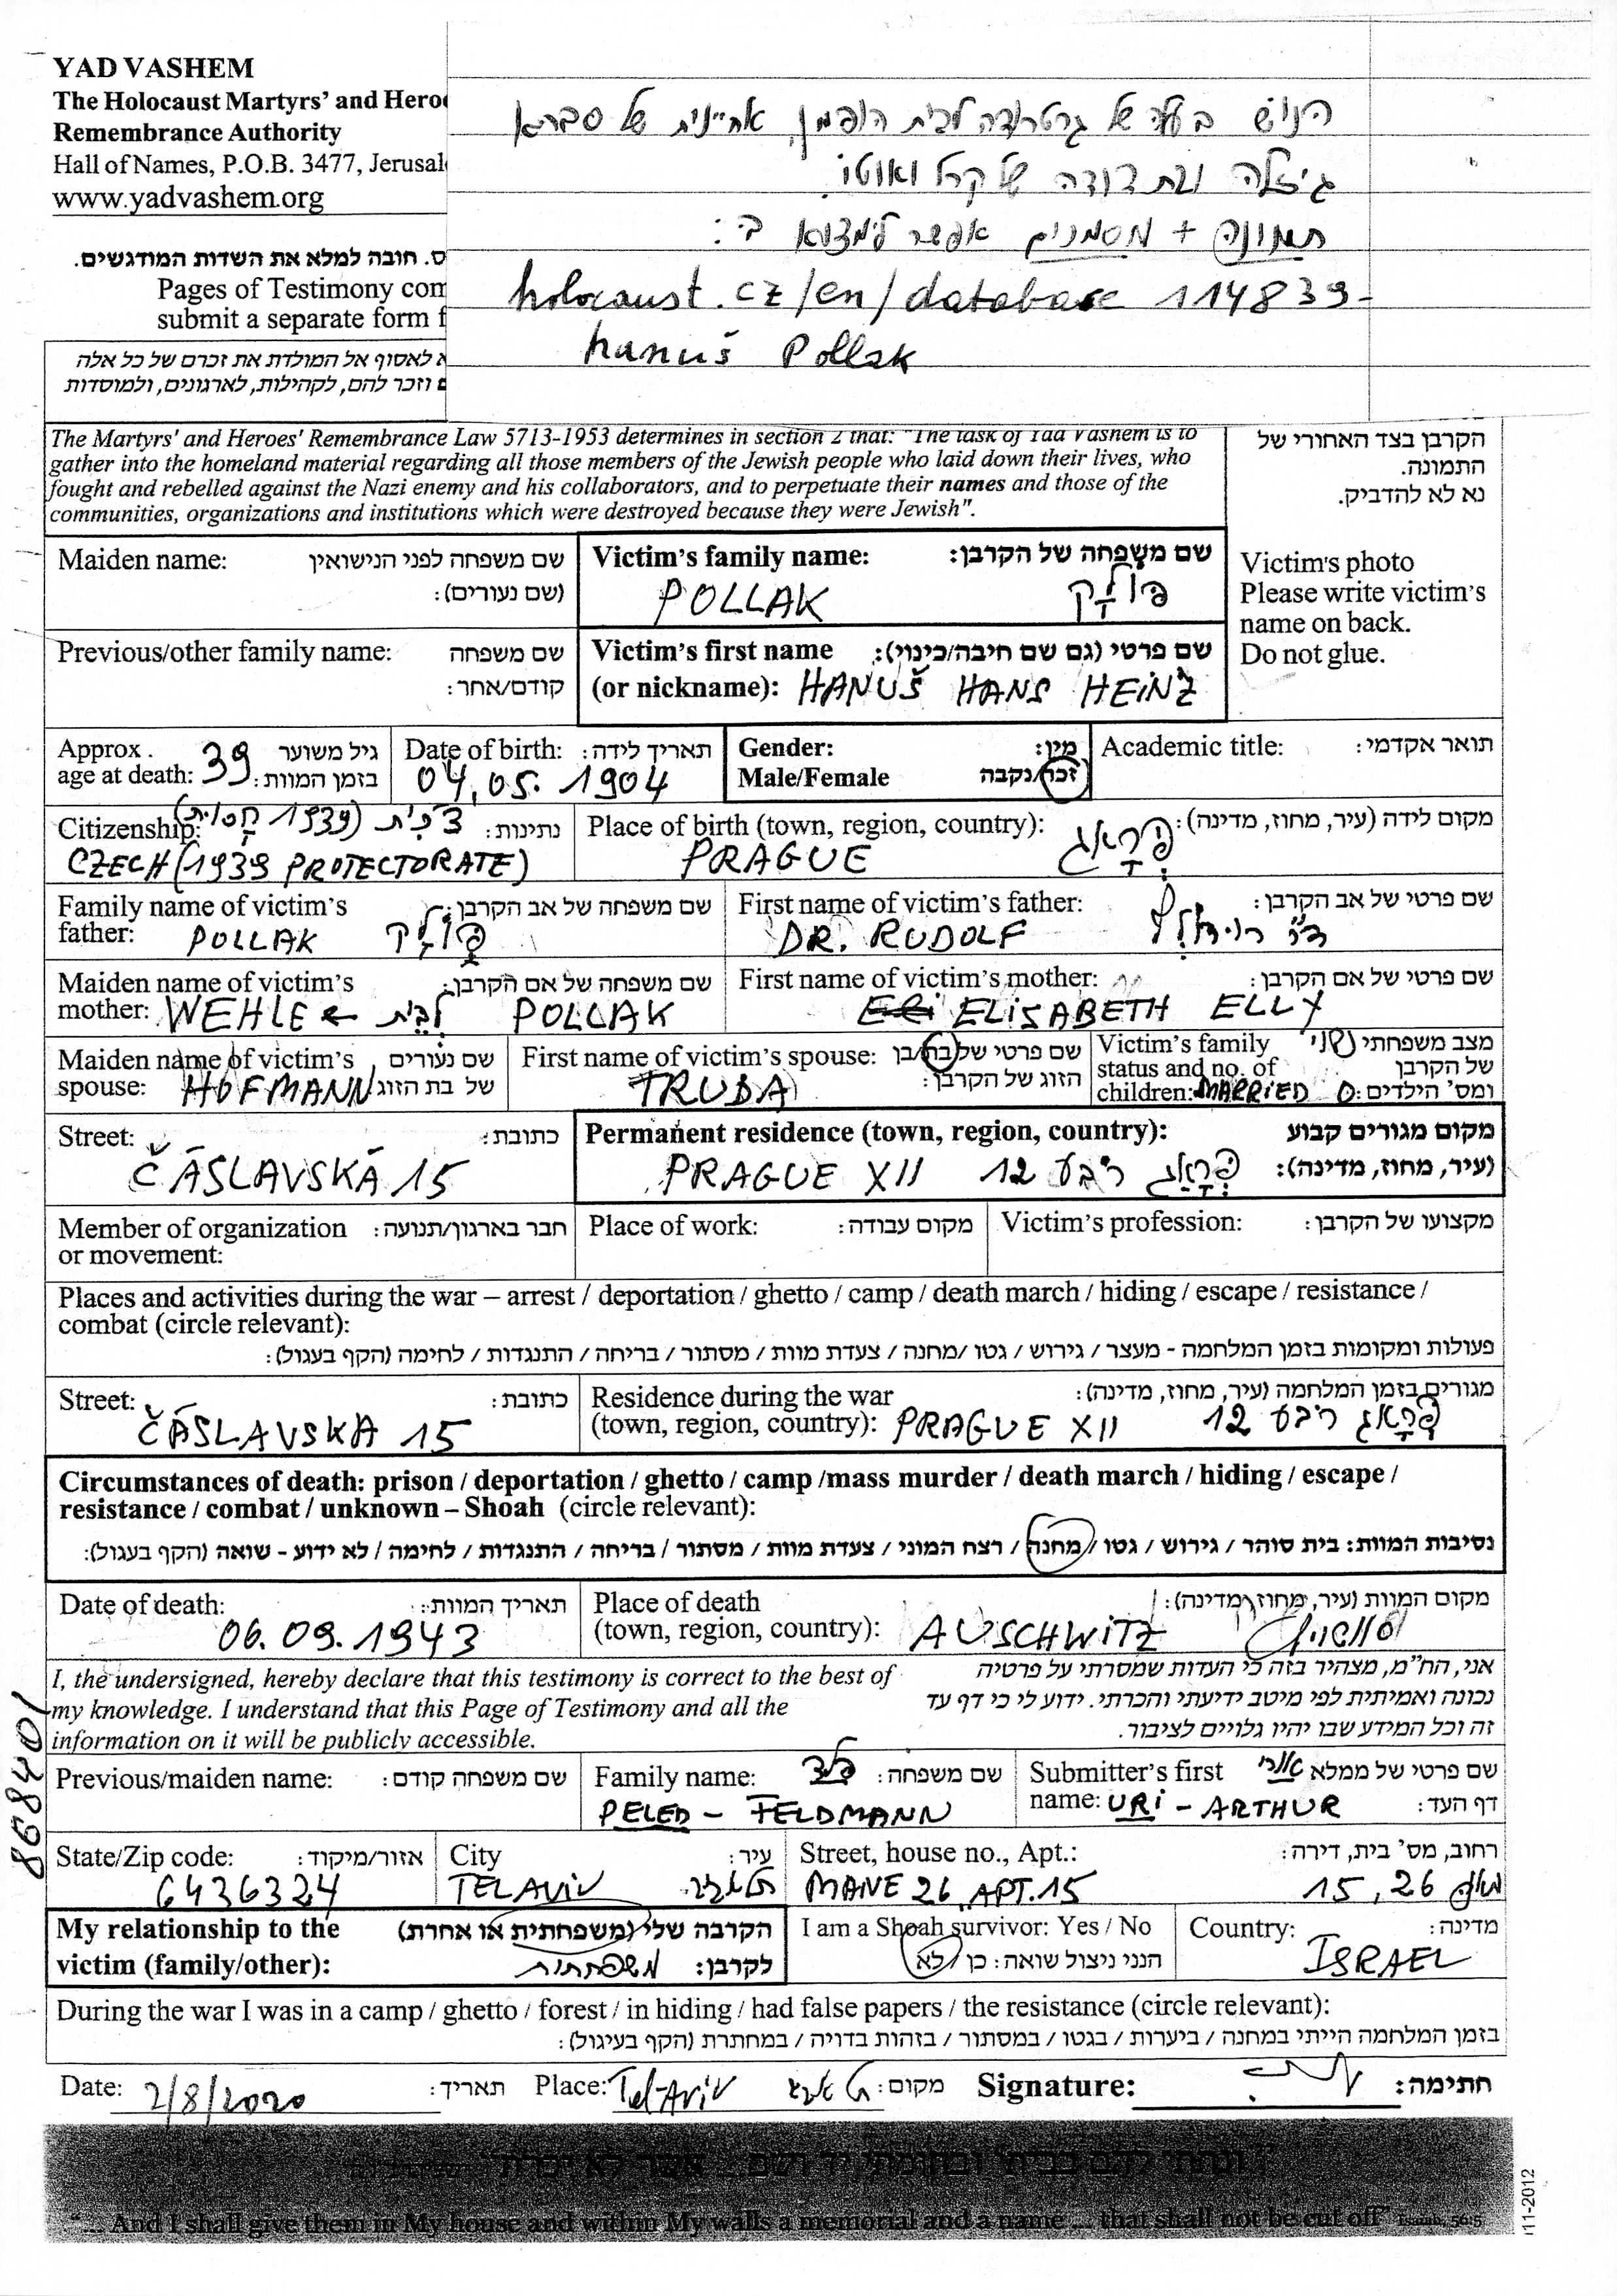 YAD VASHEM
The Holocaust Martyrs' and Hero
Remembrance Authority
Hall of Names, P.O.B. 3477, Jerusal
www.yadvashem.org
הנוש בעלה של גרטרודה לבית הופמן, אחיינית של סבתא
גיזלה ובת דודה של קרל ואוטו.
תמונה + מסמכים אפשר למצוא ב:
holocaust.cz/en/database 114839-
hanuš Pollak
ס. חובה למלא את השדות המודגשים.
Pages of Testimony com
submit a separate form f
א לאסוף אל המולדת את זכרם של כל אלה
ם וזכר להם, לקהילות, לארגונים, ולמוסדות
The Martyrs' and Heroes' Remembrance Law 5713-1953 determines in section 2 that: "The task of Yad Vashem is to
gather into the homeland material regarding all those members of the Jewish people who laid down their lives, who
fought and rebelled against the Nazi enemy and his collaborators, and to perpetuate their names and those of the
communities, organizations and institutions which were destroyed because they were Jewish".
הקרבן בצד האחורי של
התמונה.
נא לא להדביק.
Victim's photo
Please write victim's
name on back.
Do not glue.
Maiden name: שם משפחה לפני הנישואין
(שם נעורים):
Victim's family name: שם משפחה של הקרבן:
POLLAK פולק
Previous/other family name: שם משפחה
קודם/אחר:
Victim's first name שם פרטי (גם שם חיבה/כינוי):
(or nickname): HANUŠ HANS HEINZ
Approx. גיל משוער
age at death: 39 בזמן המוות:
Date of birth: תאריך לידה:
04.05.1904
Gender: מין:
Male/Female זכר/נקבה
Academic title: תואר אקדמי:
Citizenship: נתינות: צ'כית (1939 חסות)
CZECH (1939 PROTECTORATE)
Place of birth (town, region, country): מקום לידה (עיר, מחוז, מדינה):
PRAGUE פראג
Family name of victim's שם משפחה של אב הקרבן:
father: POLLAK פולק
First name of victim's father: שם פרטי של אב הקרבן:
DR. RUDOLF ד"ר רודולף
Maiden name of victim's שם משפחה של אם הקרבן:
mother: WEHLE ← לבית POLLAK
First name of victim's mother: שם פרטי של אם הקרבן:
ELISABETH ELLY
Maiden name of victim's שם נעורים
spouse: HOFMANN של בת הזוג
First name of victim's spouse: שם פרטי של בת/בן
TRUDA הזוג של הקרבן:
Victim's family מצב משפחתי נשוי
status and no. of של הקרבן
children: MARRIED 0 ומס' הילדים:
Street: כתובת:
ČÁSLAVSKÁ 15
Permanent residence (town, region, country): מקום מגורים קבוע
PRAGUE XII פראג רבע 12 (עיר, מחוז, מדינה):
Member of organization חבר בארגון/תנועה:
or movement:
Place of work: מקום עבודה:
Victim's profession: מקצועו של הקרבן:
Places and activities during the war – arrest / deportation / ghetto / camp / death march / hiding / escape / resistance /
combat (circle relevant):
פעולות ומקומות בזמן המלחמה - מעצר / גירוש / גטו /מחנה / צעדת מוות / מסתור / בריחה / התנגדות / לחימה (הקף בעגול):
Street: כתובת:
ČÁSLAVSKÁ 15
Residence during the war מגורים בזמן המלחמה (עיר, מחוז, מדינה):
(town, region, country): PRAGUE XII פראג רבע 12
Circumstances of death: prison / deportation / ghetto / camp /mass murder / death march / hiding / escape /
resistance / combat / unknown – Shoah (circle relevant):
נסיבות המוות: בית סוהר / גירוש / גטו / מחנה / רצח המוני / צעדת מוות / מסתור / בריחה / התנגדות / לחימה / לא ידוע - שואה (הקף בעגול):
Date of death: תאריך המוות:
06.09.1943
Place of death מקום המוות (עיר, מחוז, מדינה):
(town, region, country): AUSCHWITZ אושוויץ
I, the undersigned, hereby declare that this testimony is correct to the best of
my knowledge. I understand that this Page of Testimony and all the
information on it will be publicly accessible.
אני, הח"מ, מצהיר בזה כי העדות שמסרתי על פרטיה
נכונה ואמיתית לפי מיטב ידיעתי והכרתי. ידוע לי כי דף עד
זה וכל המידע שבו יהיו גלויים לציבור.
8698401
Previous/maiden name: שם משפחה קודם:
Family name: שם משפחה: פלד
PELED - FELDMANN
Submitter's first שם פרטי של ממלא אורי
name: URI - ARTHUR דף העד:
State/Zip code: אזור/מיקוד:
6436324
City עיר:
TEL AVIV תל אביב
Street, house no., Apt.: רחוב, מס' בית, דירה:
MANE 26 APT. 15 מאנה 26, 15
My relationship to the הקרבה שלי (משפחתית או אחרת)
victim (family/other): לקרבן: משפחתית
I am a Shoah survivor: Yes / No
הנני ניצול שואה: כן / לא
Country: מדינה:
ISRAEL
During the war I was in a camp / ghetto / forest / in hiding / had false papers / the resistance (circle relevant):
בזמן המלחמה הייתי במחנה / ביערות / בגטו / במסתור / בזהות בדויה / במחתרת (הקף בעיגול):
Date: 2/8/2020 תאריך: Place: Tel-Aviv תל אביב מקום: Signature: חתימה:
"... And I shall give them in My house and within My walls a memorial and a name ... that shall not be cut off" Isaiah, 56:5
11-2012